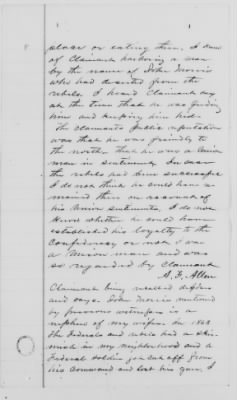 place or eating them. I knew
of Claimant harboring a man
by the name of John Morris
who had deserted from the
rebels. I heard Claimant say
at the time that he was feeding
him and keeping him hid.
The claimants public reputation
was that he was friendly to
the north that he was a Union
man in sentiment. In case
the rebels had been successful
I do not think he could have re
mained there on account of
his Union sentiments, I do not
know whether he could have
established his loyalty to the
Confederacy or not I was
a Union man and was
so regarded by claimant
Allen
Claimant being recalled
and says. John Morris mentioned
by previous witness is a
nephew of my wifes. In
the Federals and rebels had a skir
mish in my neighborhood and a
Federal soldier got cut off from
his command and lost his gun, I